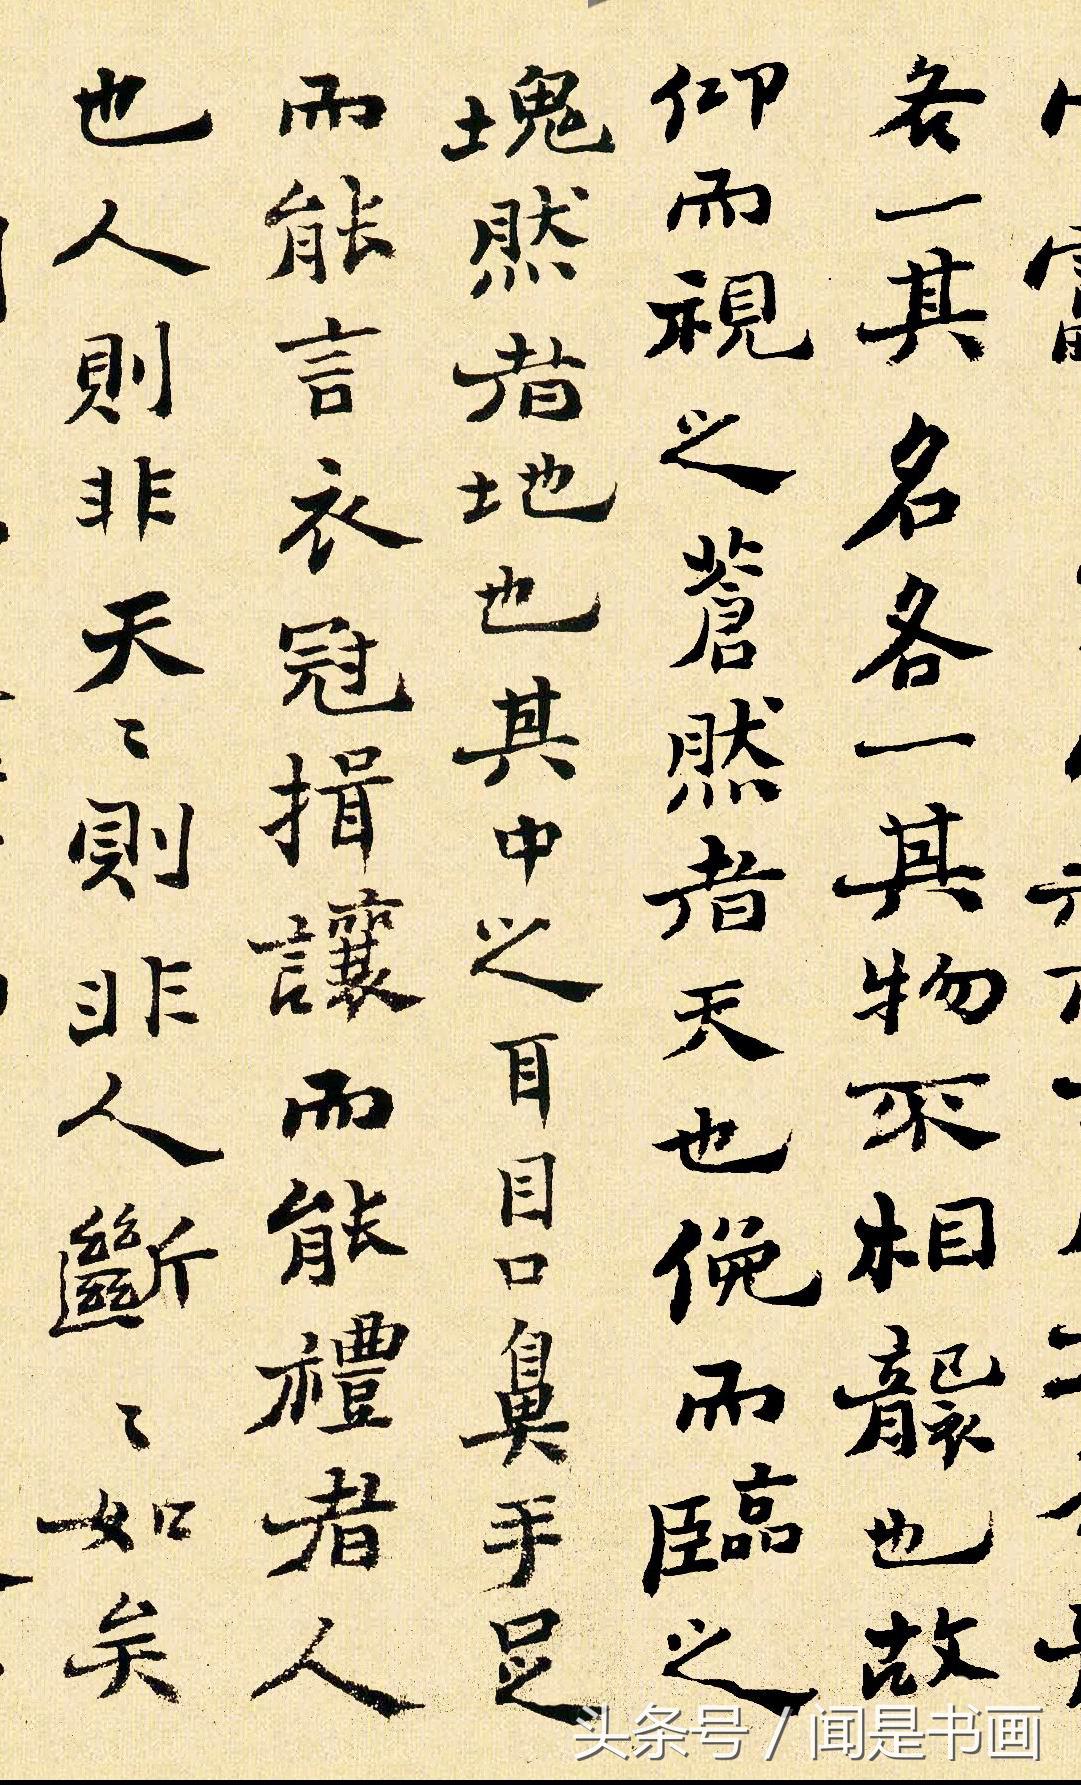 各一其名各一其物不相襲也故
仰而視之蒼然者天也俛而臨之
塊然者地也其中之耳目口鼻手足
而能言衣冠揖讓而能禮者人
也人則非天〻則非人斷〻如矣
头条号 / 闻是书画